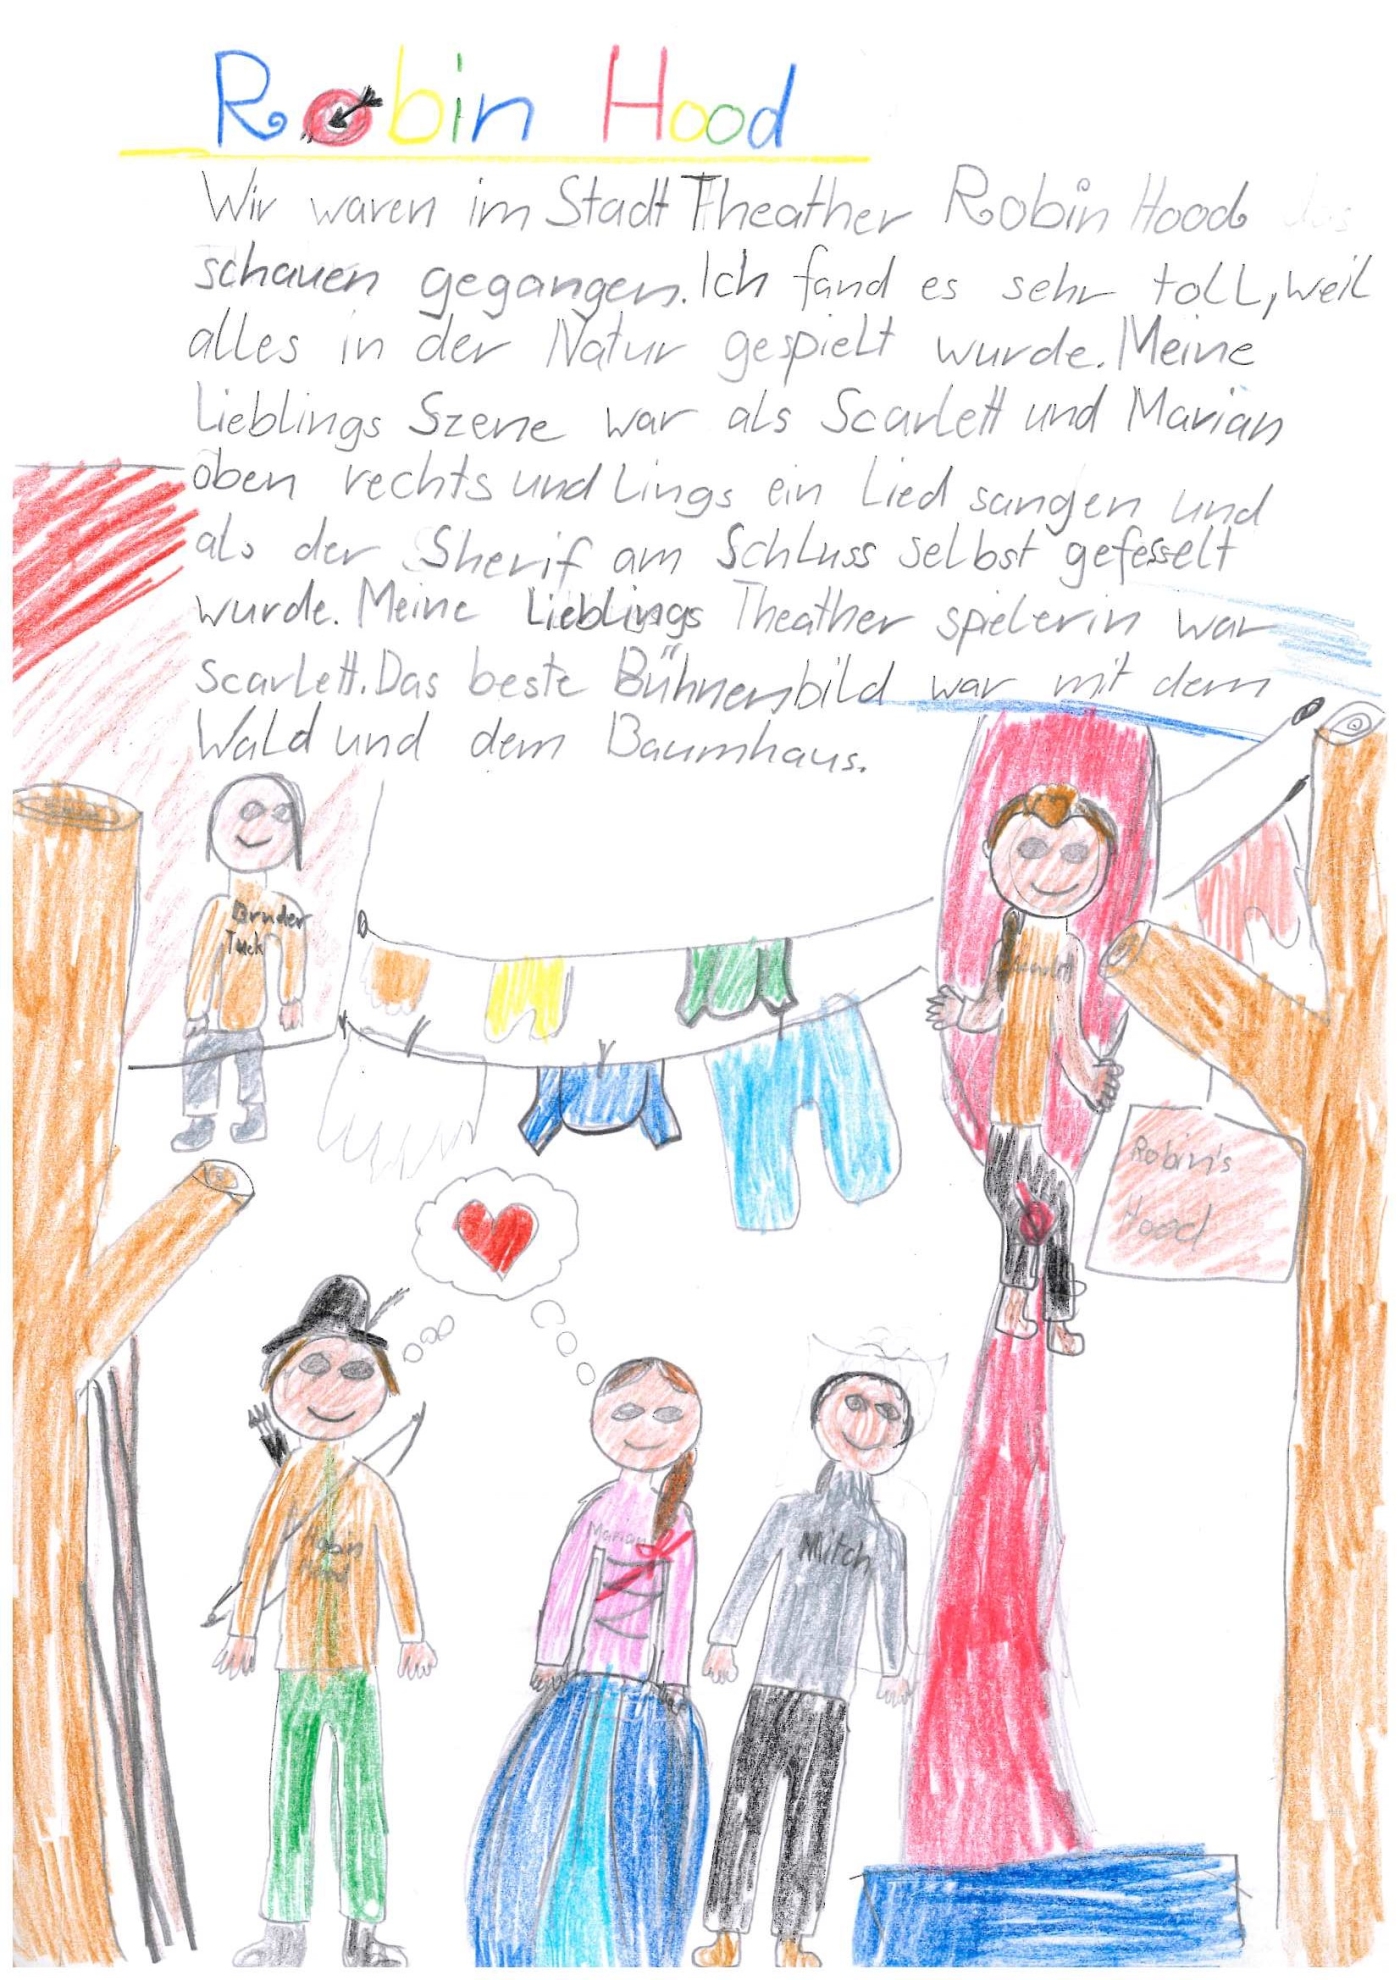 Robin Hood
Wir waren im Stadt Theather Robin Hood
schauen gegangen. Ich fand es sehr toll, weil
alles in der Natur gespielt wurde. Meine
Lieblings Szene war als Scarlett und Marian
oben rechts und Lings ein Lied sangen und
als der Sherif am Schluss selbst gefesselt
wurde. Meine Lieblings Theather spielerin war
Scarlett. Das beste Bühnenbild war mit dem
Wald und dem Baumhaus.
Bruder
Tuck
Scarlett
Robin's
Hood
Robin
Hood
Marian
Mitch